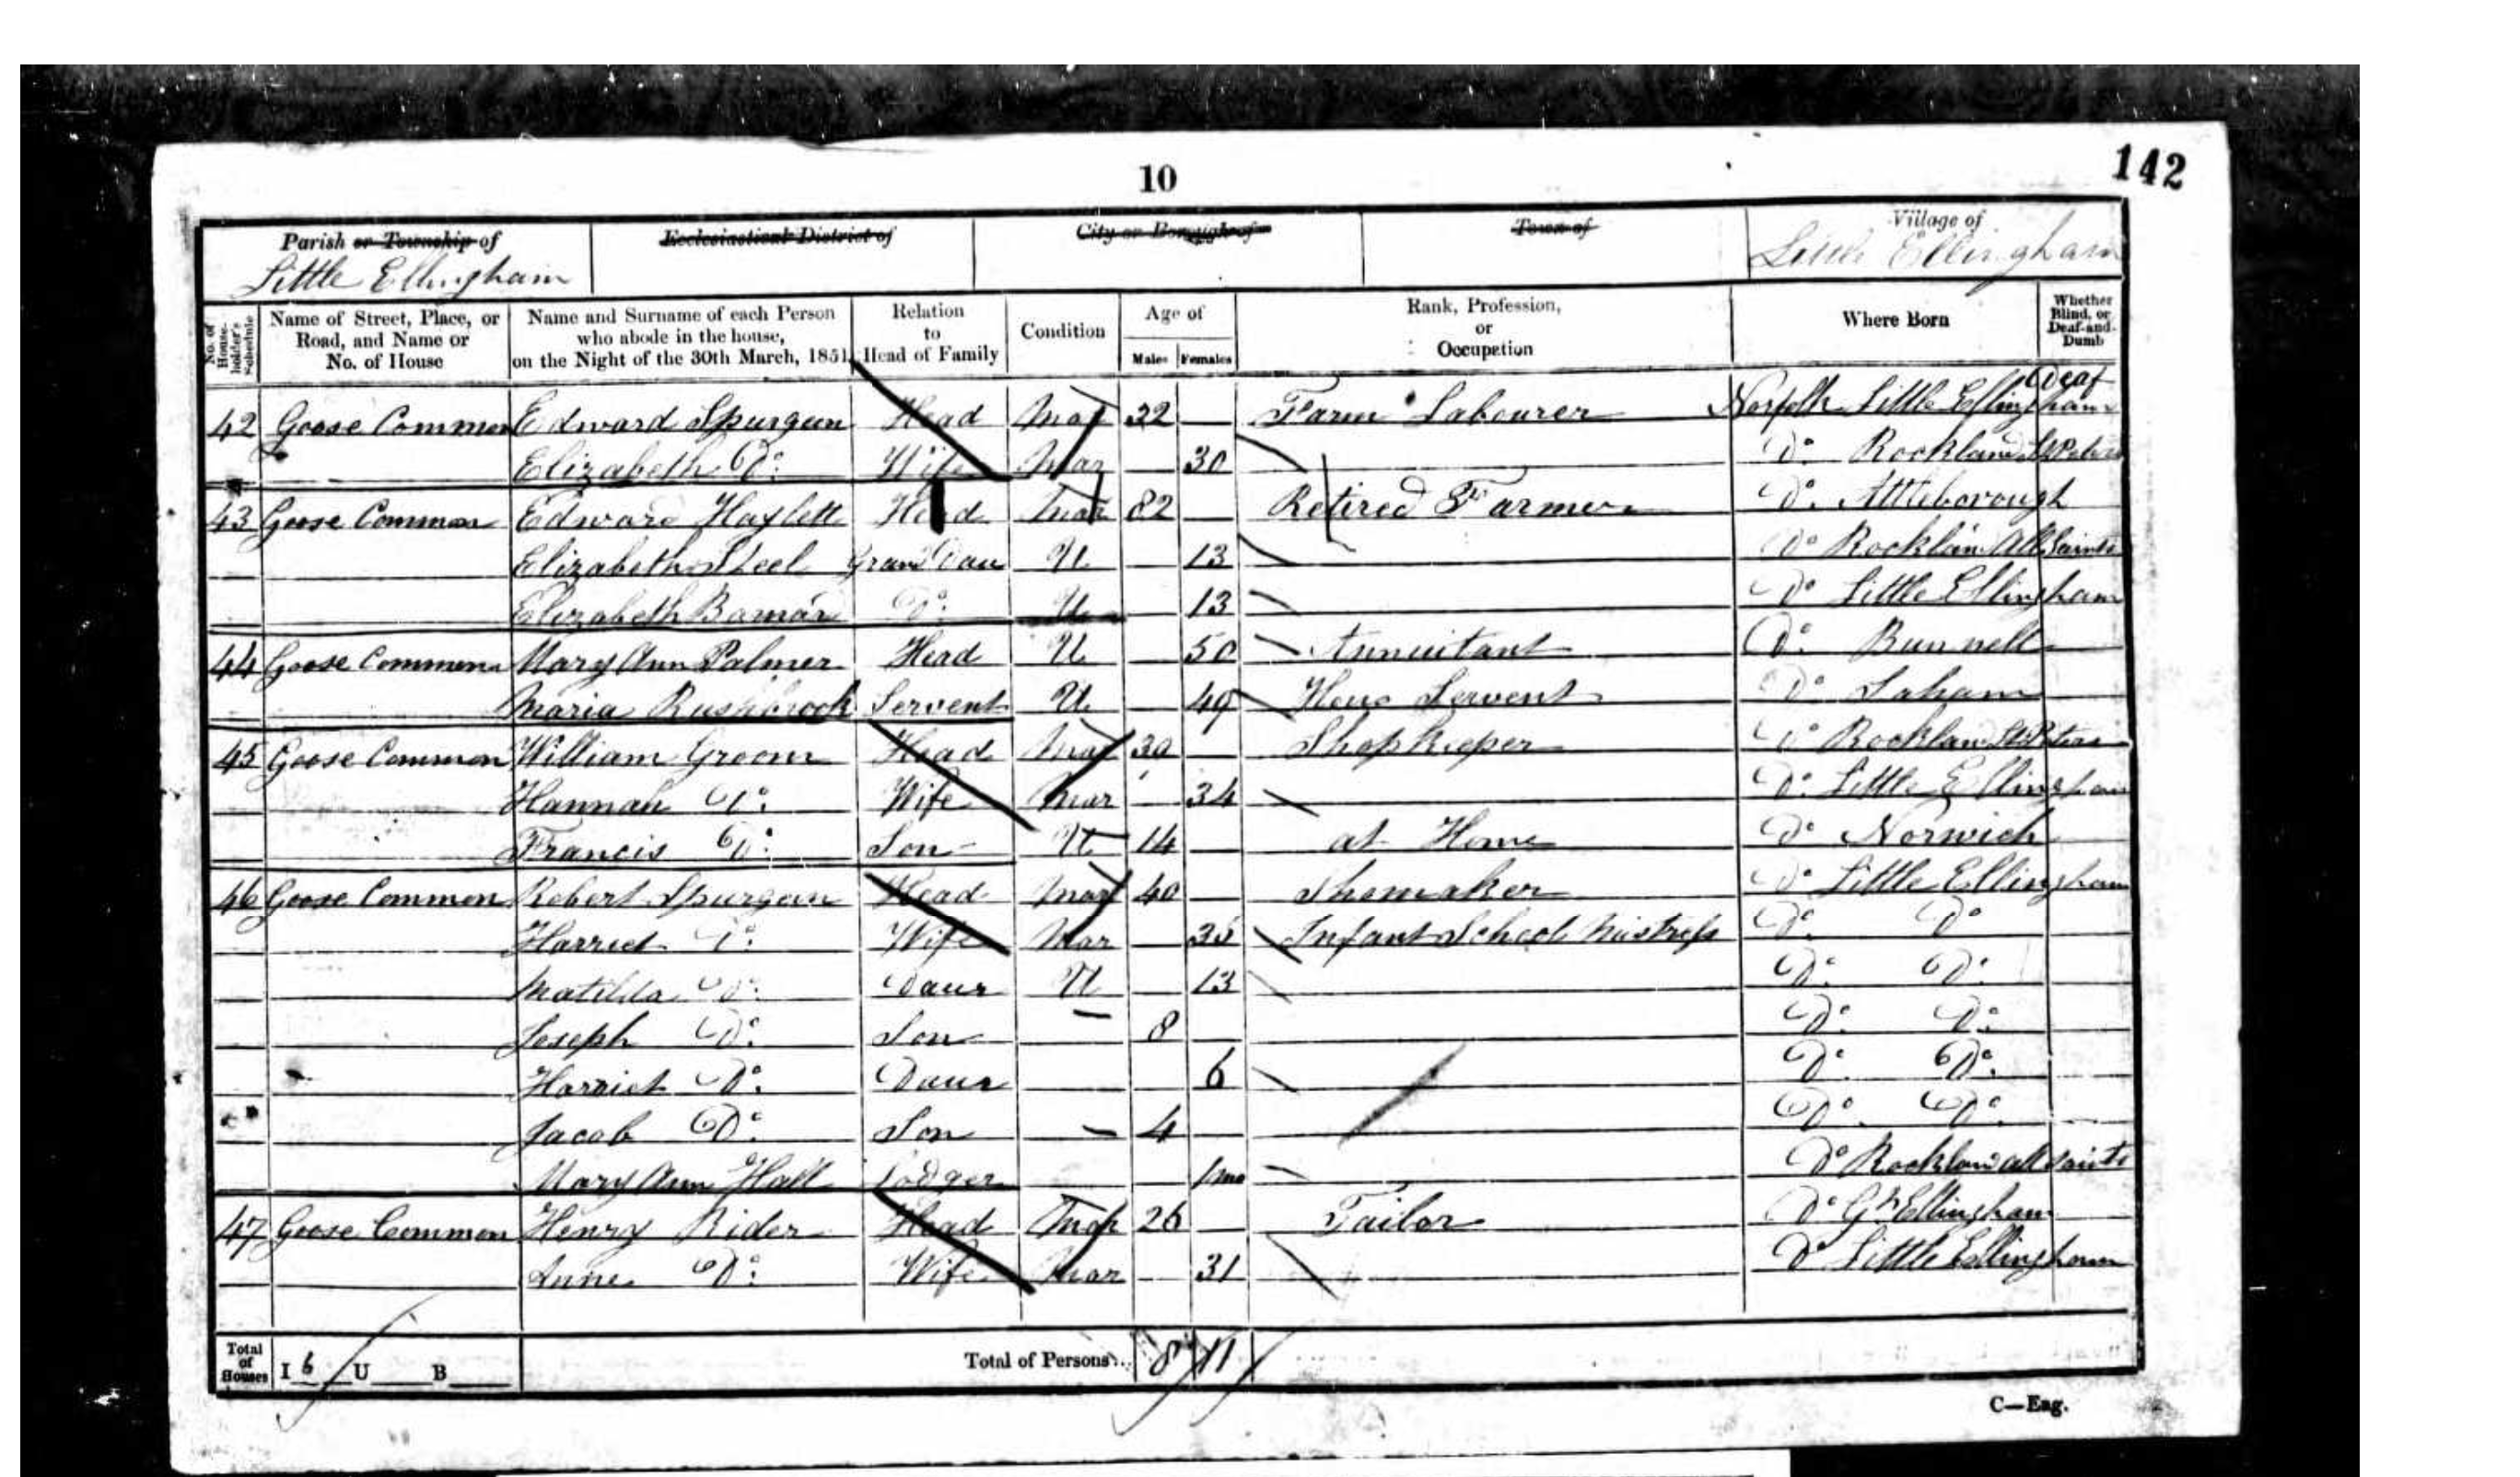 10
142
Parish or Township of
Little Ellingham
Ecclesiastical District of
City or Borough of
Town of
Village of
Little Ellingham
No. of House-holder's Schedule
Name of Street, Place, or Road, and Name or No. of House
Name and Surname of each Person who abode in the house, on the Night of the 30th March, 1851
Relation to Head of Family
Condition
Age of
Males Females
Rank, Profession, or Occupation
Where Born
Whether Blind, or Deaf-and-Dumb
Deaf
42 Goose Common Edward Spurgeon Head Mar 32 Farm Labourer Norfolk Little Ellingham
Elizabeth Do. Wife Mar 30 Do. Rockland St Peters
43 Goose Common Edward Haylett Head Mar 82 Retired Farmer Do. Attleborough
Elizabeth Steel Grand Dau U 13 Do Rocklan All Saints
Elizabeth Barnard Do. U 13 Do Little Ellingham
44 Goose Common Mary Ann Palmer Head U 50 Annuitant Do. Bunnell
Maria Rushbrook Servent U 49 Hous Servent Do Saham
45 Goose Common William Groom Head Mar 30 Shopkeeper Do Rockland St Peters
Hannah Do. Wife Mar 34 Do. Little Ellingham
Francis Do. Son U 14 at Home Do Norwich
46 Goose Common Robert Spurgeon Head Mar 40 Shomaker Do. Little Ellingham
Harriet Do. Wife Mar 35 Infant School Mistress Do. Do
Matilda Do. Daur U 13 Do. Do.
Joseph Do. Son 8 Do. Do.
Harriet Do. Daur 6 Do. Do.
Jacob Do. Son 4 Do. Do.
Mary Ann Hall Lodger 1 mo Do Rockland all saints
47 Goose Common Henry Rider Head Mar 26 Tailor Do Gt Ellingham
Anne Do. Wife Mar 31 Do Little Ellingham
Total of Houses I 6 U B
Total of Persons... 8 11
C—Eng.